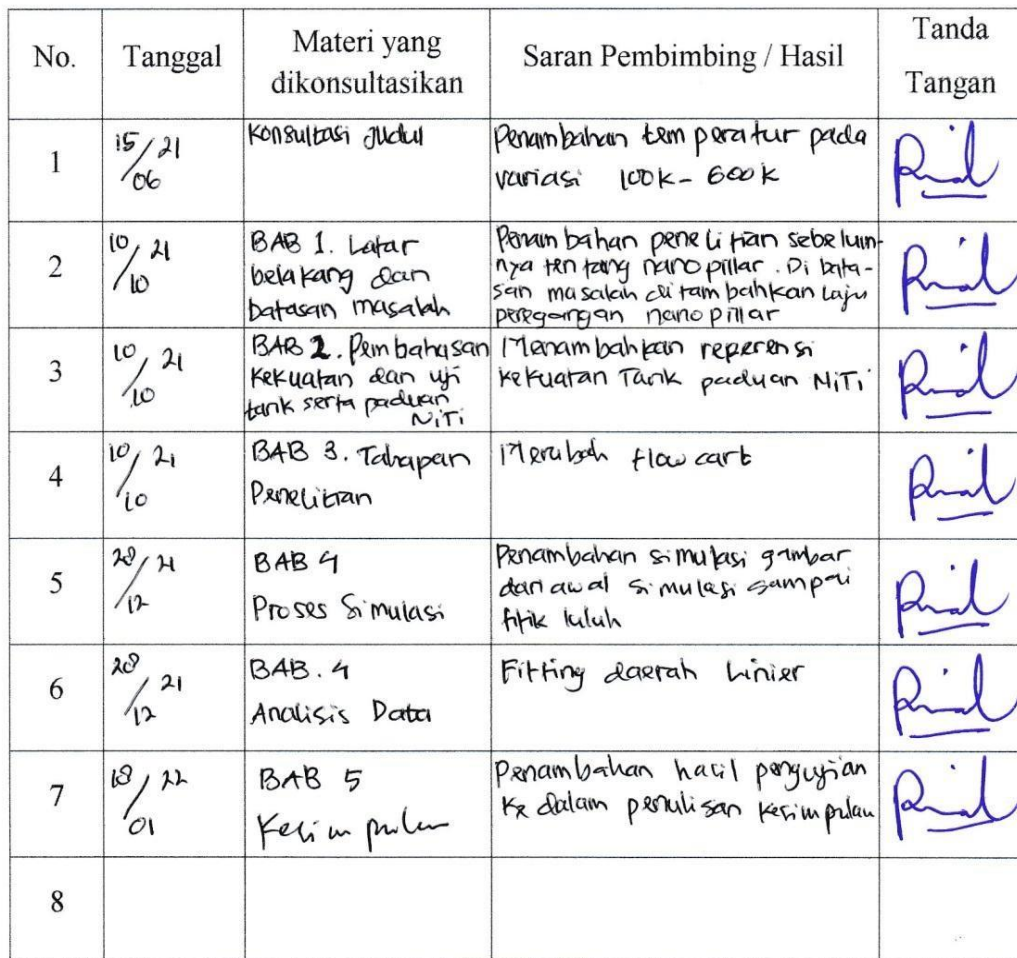 No.
Tanggal
Materi yang
dikonsultasikan
Saran Pembimbing / Hasil
Tanda
Tangan
1
15/06 21
Konsultasi Judul
Penambahan temperatur pada
variasi 100K - 600K
2
10/10 21
BAB 1. Latar
belakang dan
batasan masalah
Penambahan penelitian sebelum-
nya tentang nanopillar. Di bata-
san masalah ditambahkan laju
peregangan nanopillar
3
10/10 21
BAB 2. Pembahasan
kekuatan dan uji
tarik serta paduan
NiTi
Menambahkan reperensi
kekuatan Tarik paduan NiTi
4
10/10 21
BAB 3. Tahapan
Penelitian
Merubah flowcart
5
28/12 21
BAB 4
Proses Simulasi
Penambahan simulasi gambar
dari awal simulasi sampai
titik luluh
6
28/12 21
BAB. 4
Analisis Data
Fitting daerah Linier
7
18/01 22
BAB 5
Kesimpulan
Penambahan hasil pengujian
ke dalam penulisan kesimpulan
8